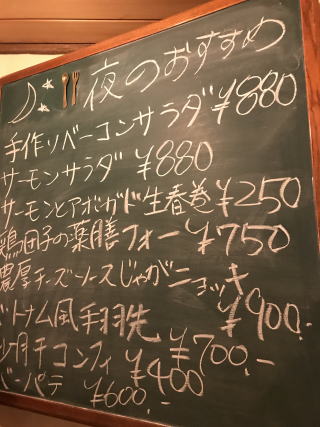 夜のおすすめ
手作りベーコンサラダ ¥880
サーモンサラダ ¥880
サーモンとアボガド生春巻 ¥250
鶏団子の薬膳フォー ¥750
濃厚チーズソースじゃがニョッキ
¥900.-
ベトナム風手羽先 ¥700.-
砂肝コンフィ ¥400
バーパテ ¥600.-